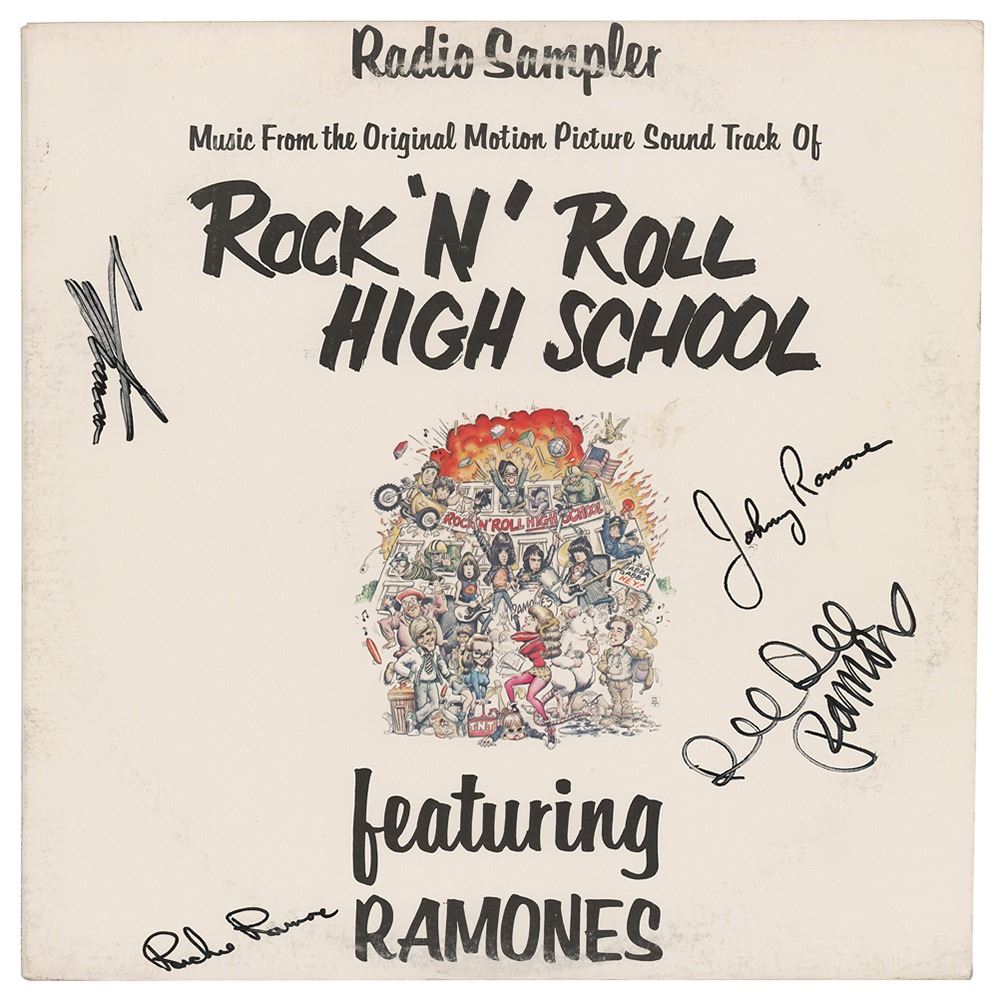 Radio Sampler
Music From the Original Motion Picture Sound Track Of
ROCK 'N' ROLL
HIGH SCHOOL
ROCK 'N' ROLL HIGH SCHOOL
GABBA
GABBA
HEY!
RAMONES
Johnny Ramone
Dee Dee
Ramone
T.N.T.
featuring
RAMONES
Richie Ramone